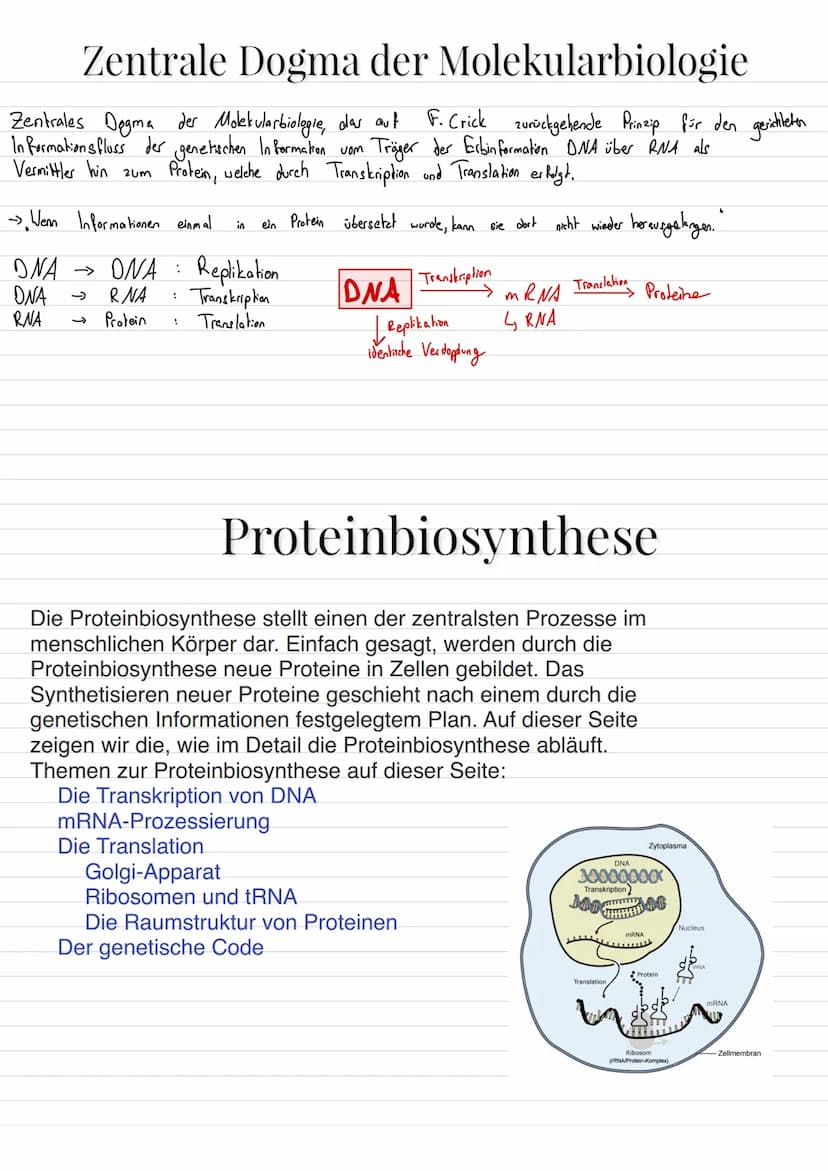 Zentrale Dogma der Molekularbiologie
Zentrales Dogma der Molekularbiologie, das auf F. Crick zurückgehende Prinzip für den gerichteten
Informationsfluss der genetischen Information vom Träger der Erbinformation DNA über RNA als
Vermittler hin zum Protein, welche durch Transkription und Translation erfolgt.
→ „Wenn Informationen einmal in ein Protein übersetzt wurde, kann sie dort nicht wieder herausgelangen."
DNA → DNA : Replikation
DNA → RNA : Transkription
RNA → Protein : Translation
DNA Transkription → mRNA Translation → Proteine
↳ RNA
↓ Replikation
identische Verdopplung
Proteinbiosynthese
Die Proteinbiosynthese stellt einen der zentralsten Prozesse im
menschlichen Körper dar. Einfach gesagt, werden durch die
Proteinbiosynthese neue Proteine in Zellen gebildet. Das
Synthetisieren neuer Proteine geschieht nach einem durch die
genetischen Informationen festgelegtem Plan. Auf dieser Seite
zeigen wir die, wie im Detail die Proteinbiosynthese abläuft.
Themen zur Proteinbiosynthese auf dieser Seite:
Die Transkription von DNA
mRNA-Prozessierung
Die Translation
Golgi-Apparat
Ribosomen und tRNA
Die Raumstruktur von Proteinen
Der genetische Code
Zytoplasma
DNA
Transkription
mRNA
Nucleus
tRNA
Protein
Translation
mRNA
Ribosom
(rRNA/Protein-Komplex)
Zellmembran